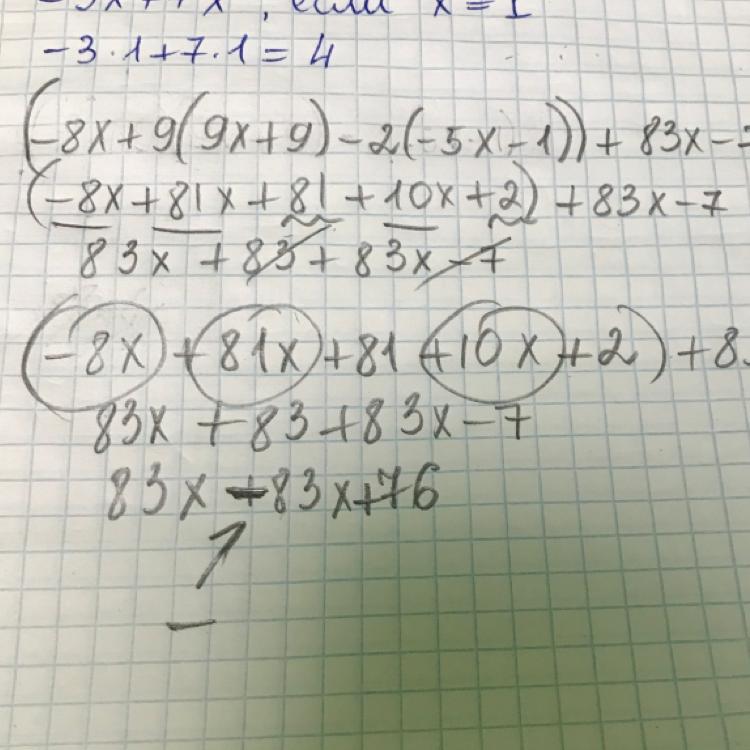 -3x+7x, если x = 1
-3·1+7·1 = 4
(-8x+9(9x+9)-2(-5x-1))+83x-
(-8x+81x+81+10x+2)+83x-7
83x+83+83x-7
(-8x+81x+81+10x+2)+8
83x+83+83x-7
83x+83x+76
-